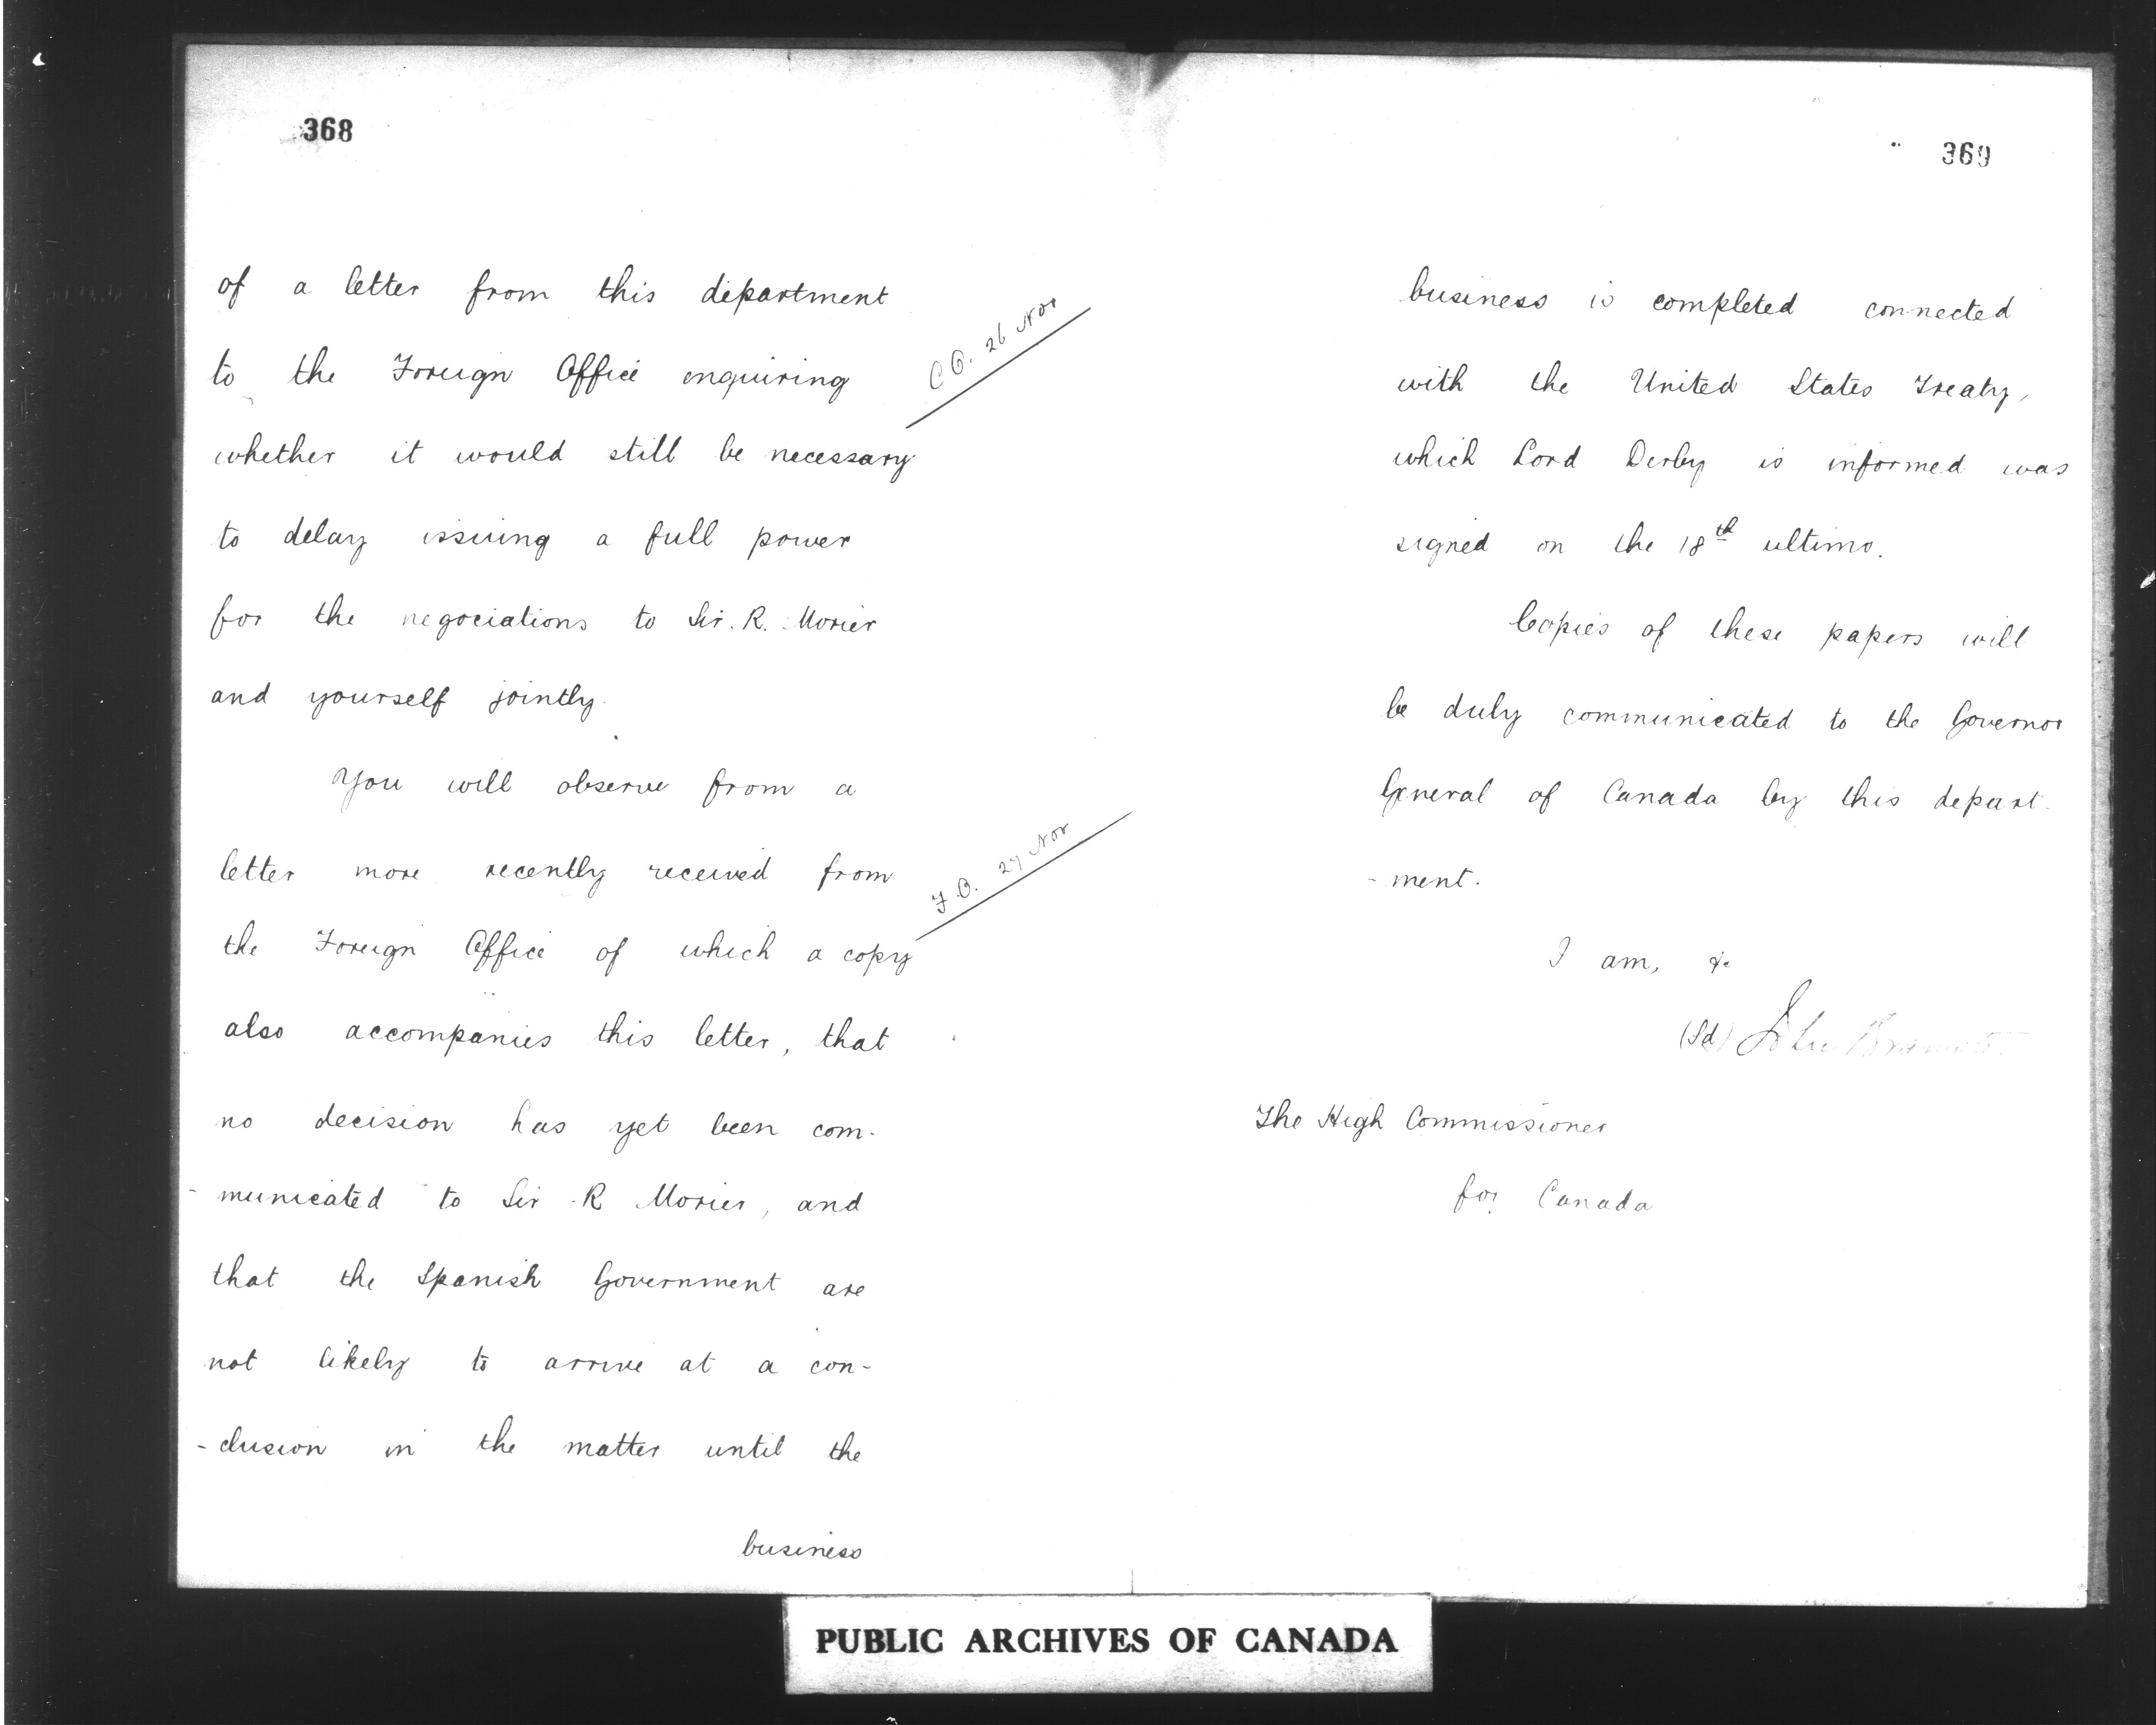 368
of a letter from this department
C.O. 26 Nov
to the Foreign Office enquiring
whether it would still be necessary
to delay issuing a full power
for the negociations to Sir. R. Morier
and yourself jointly.
You will observe from a
letter more recently received from
F.O. 27 Nov
the Foreign Office of which a copy
also accompanies this letter, that
no decision has yet been com-
- municated to Sir R Morier, and
that the Spanish Government are
not likely to arrive at a con-
- clusion in the matter until the
business
369
business is completed connected
with the United States Treaty,
which Lord Derby is informed was
signed on the 18th ultimo.
Copies of these papers will
be duly communicated to the Governor
General of Canada by this depart-
- ment.
I am, &c
(Sd) John Bramston
The High Commissioner
for Canada
PUBLIC ARCHIVES OF CANADA